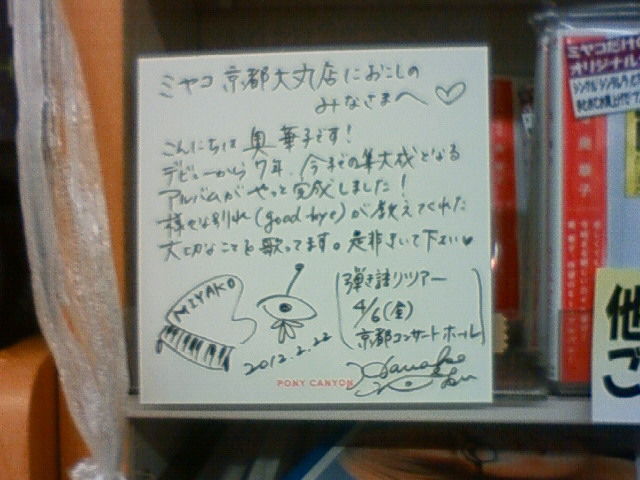 ミヤコ 京都大丸店におこしの
みなさまへ♡
こんにちは 奥 華子です!
デビューから7年、今までの集大成となる
アルバムがやっと完成しました!
様々な別れ(good-bye)が教えてくれた
大切なことを歌ってます。是非きいて下さい♥
MIYAKO
弾き語りツアー
4/6(金)
京都コンサートホール
2012.2.22
PONY CANYON
ミヤコだけの
オリジナル
奥 華子
他